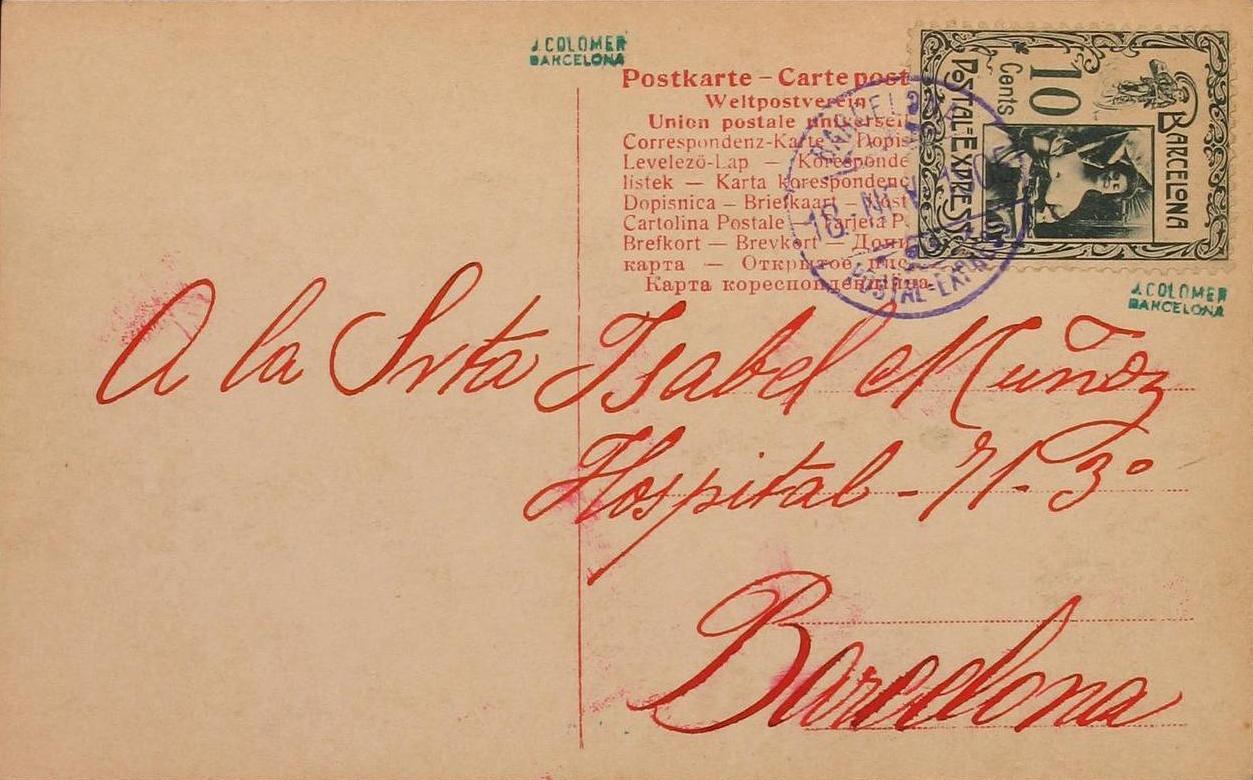 J. COLOMER
BARCELONA
Postkarte – Carte post
Weltpostverein
Union postale universel
Correspondenz-Karte – Dopis
Levelező-Lap – Koresponde
listek – Karta korespondenc
Dopisnica – Briefkaart – Post
Cartolina Postale – Tarjeta P.
Brefkort – Brevkort – Допи
карта – Открытое пис
Карта кореспонденцiйна
BARCELONA
10
Cents
POSTAL-EXPRESS
BARCELONA
POSTAL-EXPRES
J. COLOMER
BARCELONA
A la Srta Isabel Muñoz
Hospital - 71 - 3º
Barcelona